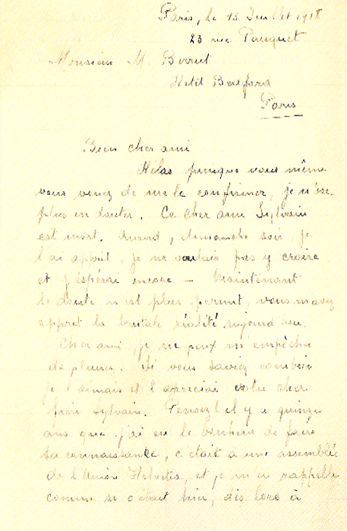 Paris, le 15 Juillet 1918
23 rue Pauquet
Monsieur M. Borrut
Hotel Beaufort
Paris
Bien cher ami
Hélas puisque vous même
vous venez de me le confirmer, je n'ose
plus en douter. Ce cher ami Sylvain
est mort. Quand, dimanche soir, je
l'ai appris, je ne voulais pas y croire
et j'espérai encore — Maintenant
le doute n'est plus permis, vous m'avez
appris la brutale réalité aujourd'hui.
Cher ami, je ne peux m'empêcher
de pleurer. Si vous saviez combien
je l'aimais et l'appréciai votre cher
frère Sylvain. Pensez! il y a quinze
ans que j'ai eu le bonheur de faire
sa connaissance, c'était a une assemblée
de l'Union Helvetia, et je m'en rappelle
comme si c'était hier, dès lors à